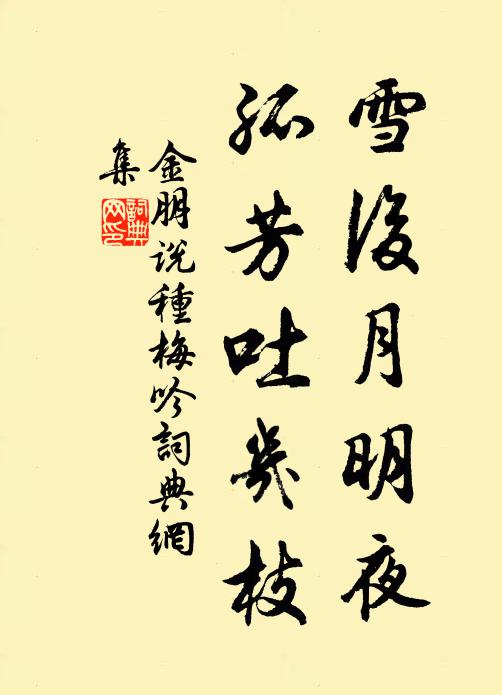 雪後月明夜
孤芳吐幾枝
金朋说種梅吟詞典網
集
詞典
网印